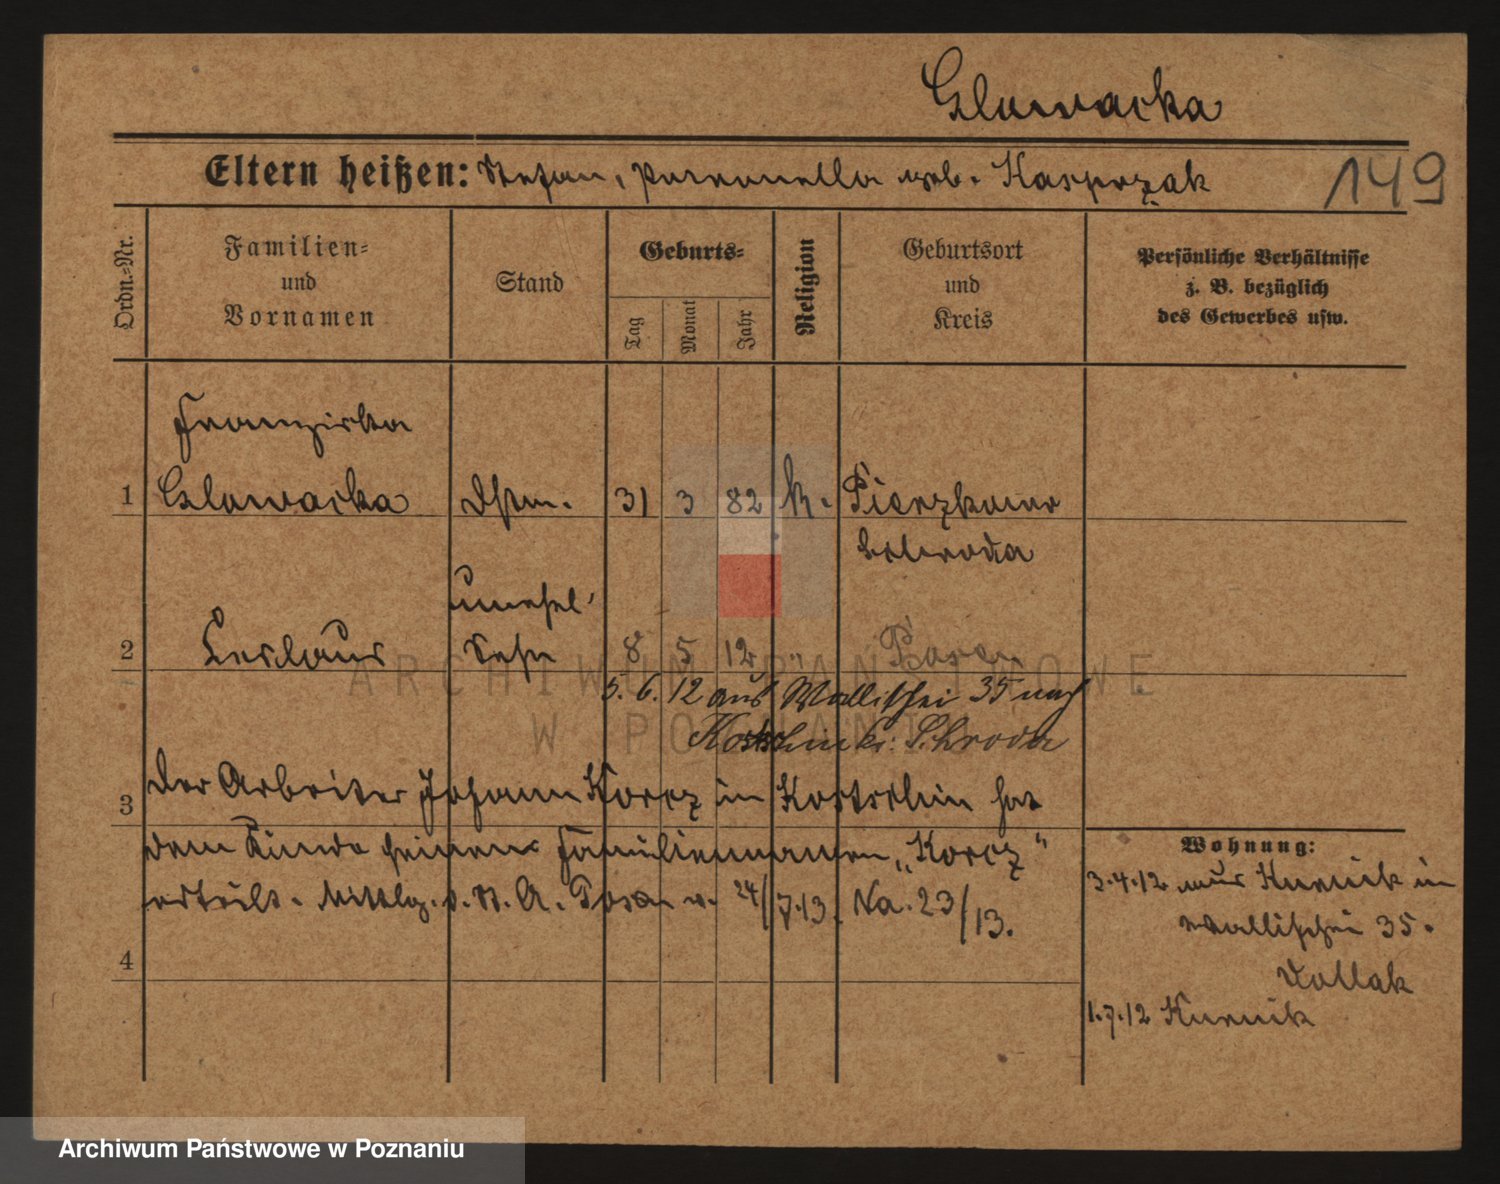 Glowacka
Eltern heißen: Stefan, Petronella geb. Kasprzak
149
Ordn.-Nr.
Familien-
und
Vornamen
Stand
Geburts-
Tag
Monat
Jahr
Religion
Geburtsort
und
Kreis
Persönliche Verhältnisse
z. B. bezüglich
des Gewerbes usw.
Franziska
1 Glowacka 31 3 82 k. Pierzkowo
Schroda
unehel.
2 Sohn 8 5 12 " Posen
5. 6. 12 aus Wallischei 35 nach
Kostschin Kr. Schroda
3 Der Arbeiter Johann Korcz in Kostschin hat
dem Kinde seinen Familiennamen „Korcz"
erteilt. Mittlg. d. St. A. Posen v. 24/7.13. Na. 23/13.
4
Wohnung:
3.4.12 aus Kurnik in
Wallischei 35.
1.7.12 Kurnik
ARCHIWUM PAŃSTWOWE
W POZNANIU
Archiwum Państwowe w Poznaniu